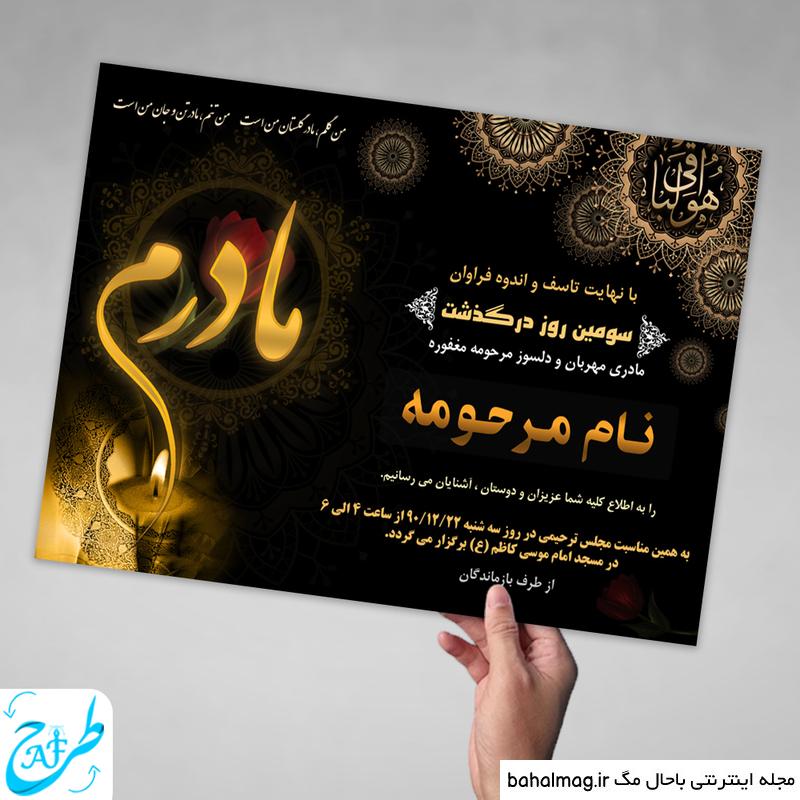 من گلم، مادر گلستان من است من تنم، مادر تن و جان من است
هوالباقی
مادرم
با نهایت تاسف و اندوه فراوان
سومین روز درگذشت
مادری مهربان و دلسوز مرحومه مغفوره
نام مرحومه
را به اطلاع کلیه شما عزیزان و دوستان ، آشنایان می رسانیم.
به همین مناسبت مجلس ترحیمی در روز سه شنبه ۹۰/۱۲/۲۲ از ساعت ۴ الی ۶
در مسجد امام موسی کاظم (ع) برگزار می گردد.
از طرف بازماندگان
طرح
AF
مجله اینترنتی باحال مگ bahalmag.ir